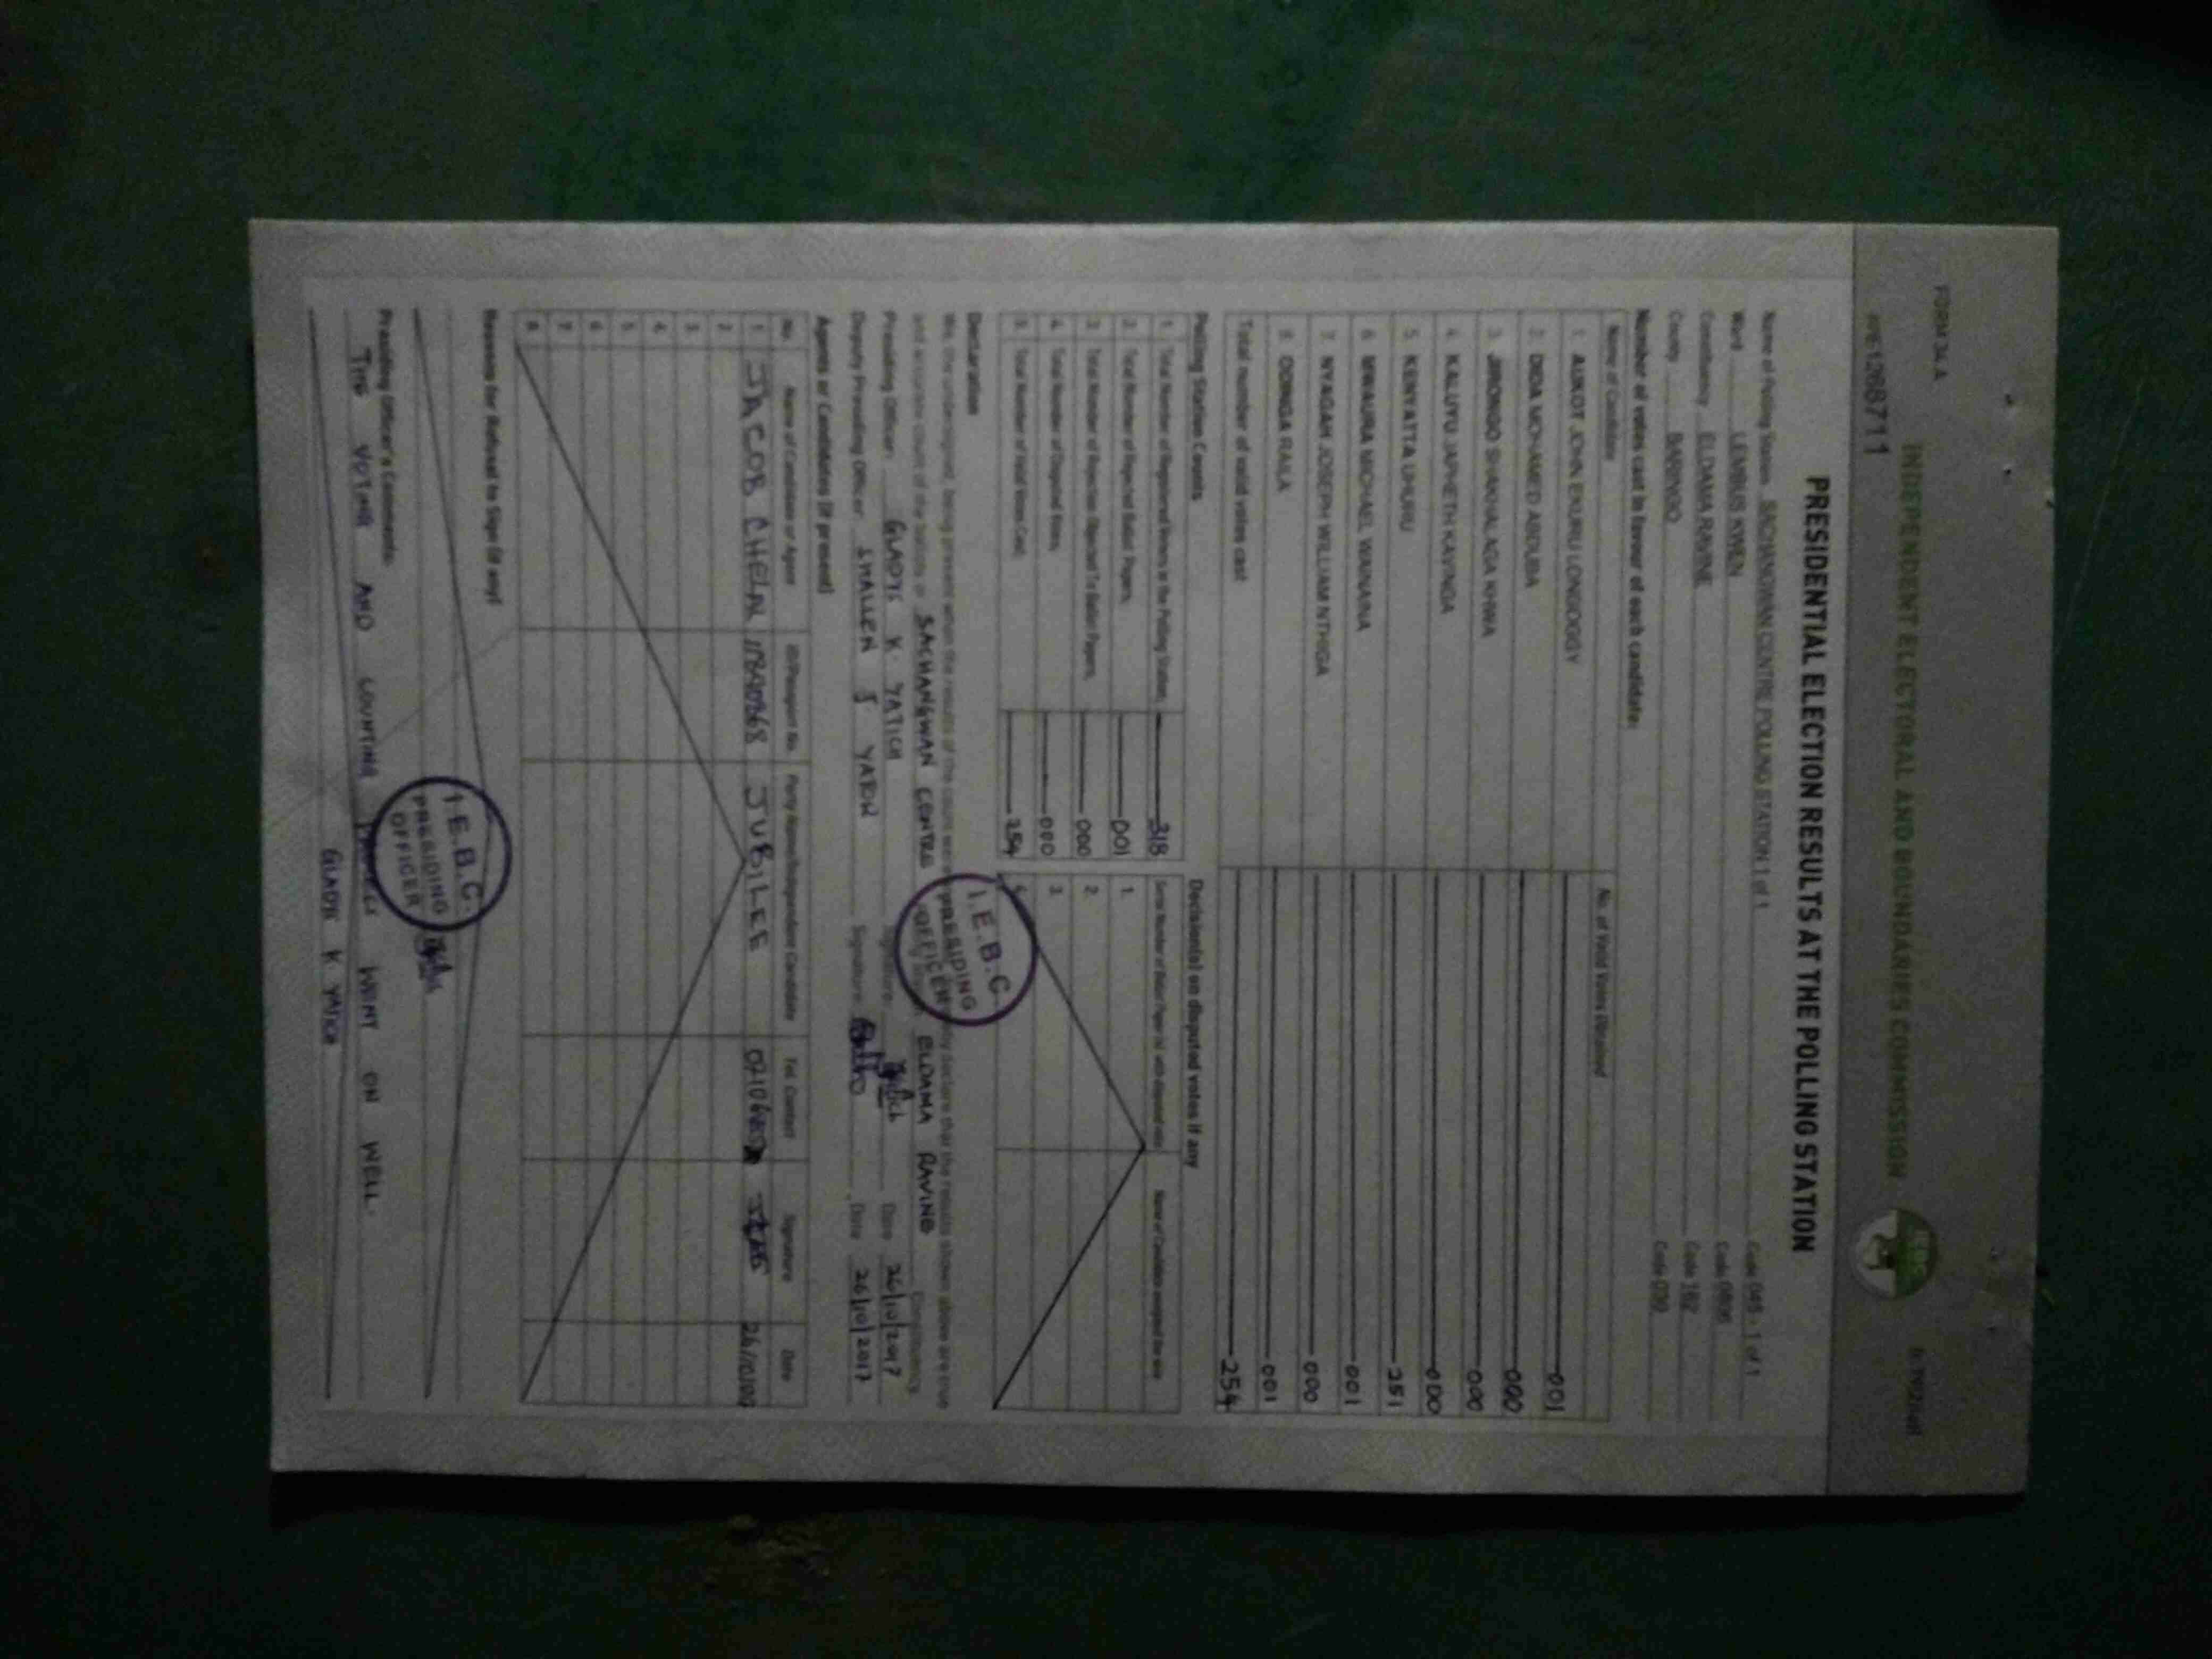 FORM 34 A
INDEPENDENT ELECTORAL AND BOUNDARIES COMMISSION
1368711
PRESIDENTIAL ELECTION RESULTS AT THE POLLING STATION
Name of Polling Station SACHANGWAN CENTRE POLLING STATION 1 of 1 Code 045 - 1 of 1
Ward LEMBUS KWEN Code 0806
Constituency ELDAMA RAVINE Code 162
County BARINGO Code 030
Number of votes cast in favour of each candidate:
Name of Candidate No. of Valid Votes Obtained
1. AUKOT JOHN EKURU LONGOGGY 001
2. DIDA MOHAMED ABDUBA 000
3. JIRONGO SHAKHALAGA KHWA 000
4. KALUYU JAPHETH KAVINGA 000
5. KENYATTA UHURU 251
6. MWAURA MICHAEL WAINAINA 001
7. NYAGAH JOSEPH WILLIAM NTHIGA 000
8. ODINGA RAILA 001
Total number of valid votes cast 254
Polling Station Counts
1. Total Number of Registered Voters in the Polling Station 318
2. Total Number of Rejected Ballot Papers 001
3. Total Number of Rejection Objected To Ballot Papers 000
4. Total Number of Disputed Votes 000
5. Total Number of Valid Votes Cast 254
Decision(s) on disputed votes if any
1.
2.
3.
4.
Declaration
We, the undersigned, being present when the results of the count were declare that the results shown above are true
and accurate count of the ballots in SACHANGWAN CENTRE ELDAMA RAVINE Constituency
Presiding Officer: GLADYS K. YATICH Signature: Date 26/10/2017
Deputy Presiding Officer: SHALLEN J Signature: Date 26/10/2017
Agents or Candidates (if present)
No. Name of Candidate or Agent ID/Passport No. Party Name/Independent Candidate Tel. Contact Signature Date
1. JACOB JUBILEE
2.
3.
4.
5.
6.
7.
8.
Reasons for Refusal to Sign (if any)
I.E.B.C.
PRESIDING
OFFICER
Presiding Officer's Comments:
THE VOTING AND COUNTING WENT ON WELL.
GLADYS K YATICH
I.E.B.C.
PRESIDING
OFFICER